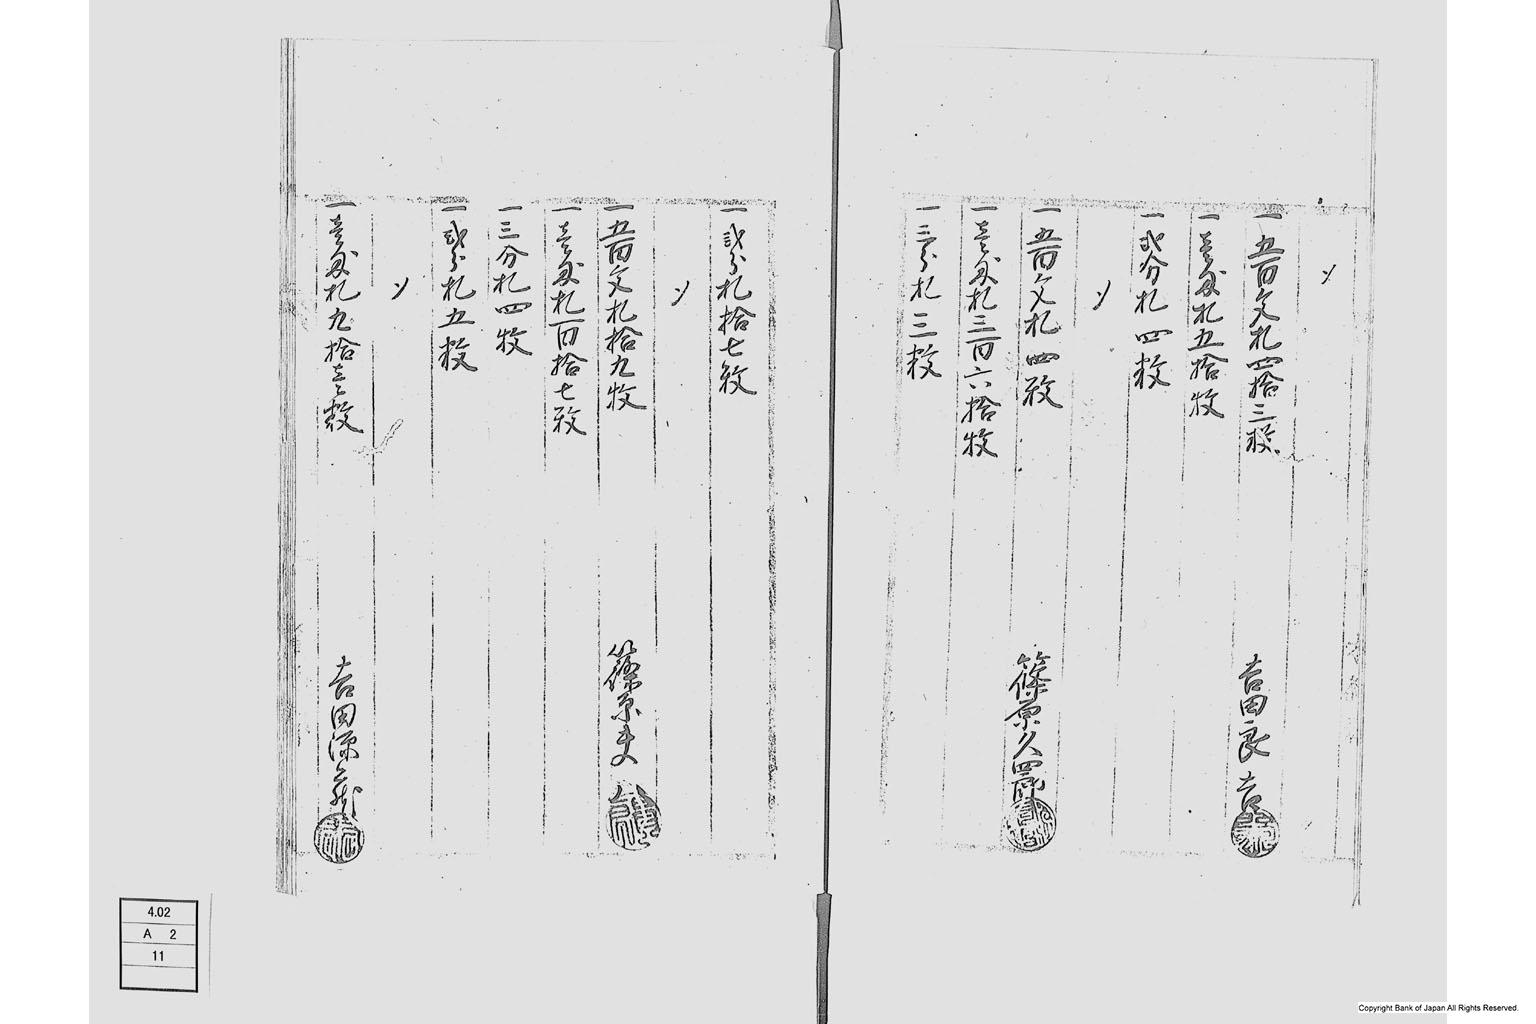 〆
一 五百文札四拾三枚 吉田良吉
一 壱匁札五拾枚
一 弐分札四枚
〆
一 五百文札四枚 篠原久四郎
一 壱匁札三百六拾枚
一 三分札三枚
一 弐分札拾七枚
〆
一 五百文札拾九枚 篠原
一 壱匁札百拾七枚
一 三分札四枚
一 弐分札五枚
〆
一 壱匁札九拾壱枚 吉田源蔵
4.02
A 2
11
Copyright Bank of Japan All Rights Reserved.